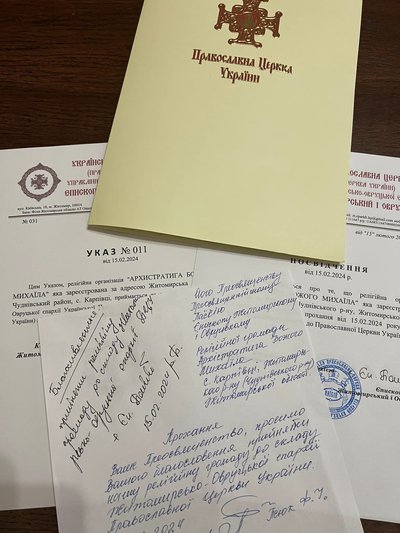 Православна Церква
України
УКРАЇНС
(ПРА
УПРАВЛІН
ЕПИСКОП
вул. Київська, 18, м. Житомир, 10014
№ 031
УКАЗ № 011
від 15.02.2024
Цим Указом, релігійна організація "АРХИСТРАТИГА БО
МИХАЇЛА" яка зареєстрована за адресою Житомирська
Чуднівський район, с. Карпівці, приймається
Овруцької єпархії Українс
України)
Житоми
АВНА ЦЕР
ЦЕРКВА УКРАЇНИ)
СЬКО-ОВРУЦЬКОЇ ЄПАРХ
КИЙ І ОВРУ
від "15" лютого 20
ПОСВІДЧЕННЯ
від 15.02.2024 р.
що те, що релігійна о
ОЖОГО МИХАЇЛА"
Чуднівського р-ну, Житоми
прохання від 15.02.2024 року,
ї до Православної Церкви Україн
Єпископ
Житомирський і О
Благословення
прийняти релігійну
громаду до складу Житоми-
рсько-Овруцької єпархії ПЦУ
+ Єп. Паїсій
15.02.2024 р.Б.
Його Преосвященству
Преосвященнішому
Паїсію
Єпископу Житомирському
і Овруцькому
Релігійної громади
Архистратига Божого
Михаїла
с. Карпівці, Житомирсь-
кого р-ну (Чуднівського р-ну)
Житомирської області
Прохання
Ваше Преосвященство, просимо
Вашого благословення прийняти
нашу релігійну громаду до складу
Житомирсько-Овруцької єпархії
Православної Церкви України.
2024